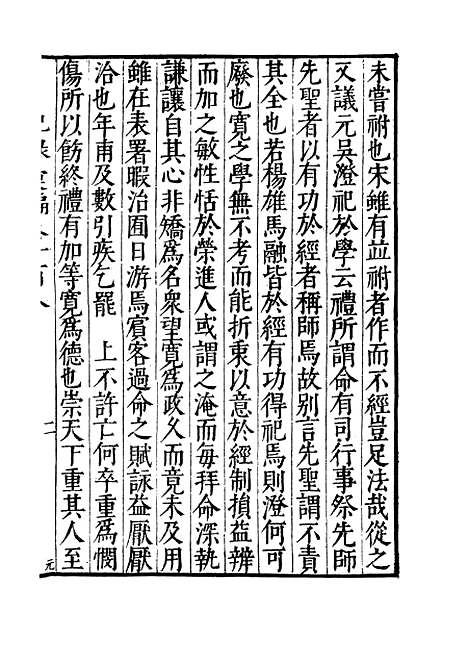 未嘗祔也宋雖有並祔者作而不經豈足法哉從之
又議元吳澄祀於學云禮所謂命有司行事祭先師
先聖者以有功於經者稱師焉故别言先聖謂不責
其全也若楊雄馬融皆於經有功得祀焉則澄何可
廢也寛之學無不考而能折衷以意於經制損益辨
而加之敏性恬於榮進人或謂之淹而每拜命深執
謙讓自其心非矯爲名衆望寛爲政久而竟未及用
雖在表署暇治囿日游焉賓客過命之賦詠益厭厭
洽也年甫及數引疾乞罷 上不許亡何卒重爲憫
傷所以飭終禮有加等寛爲德也崇天下重其人至
二
元